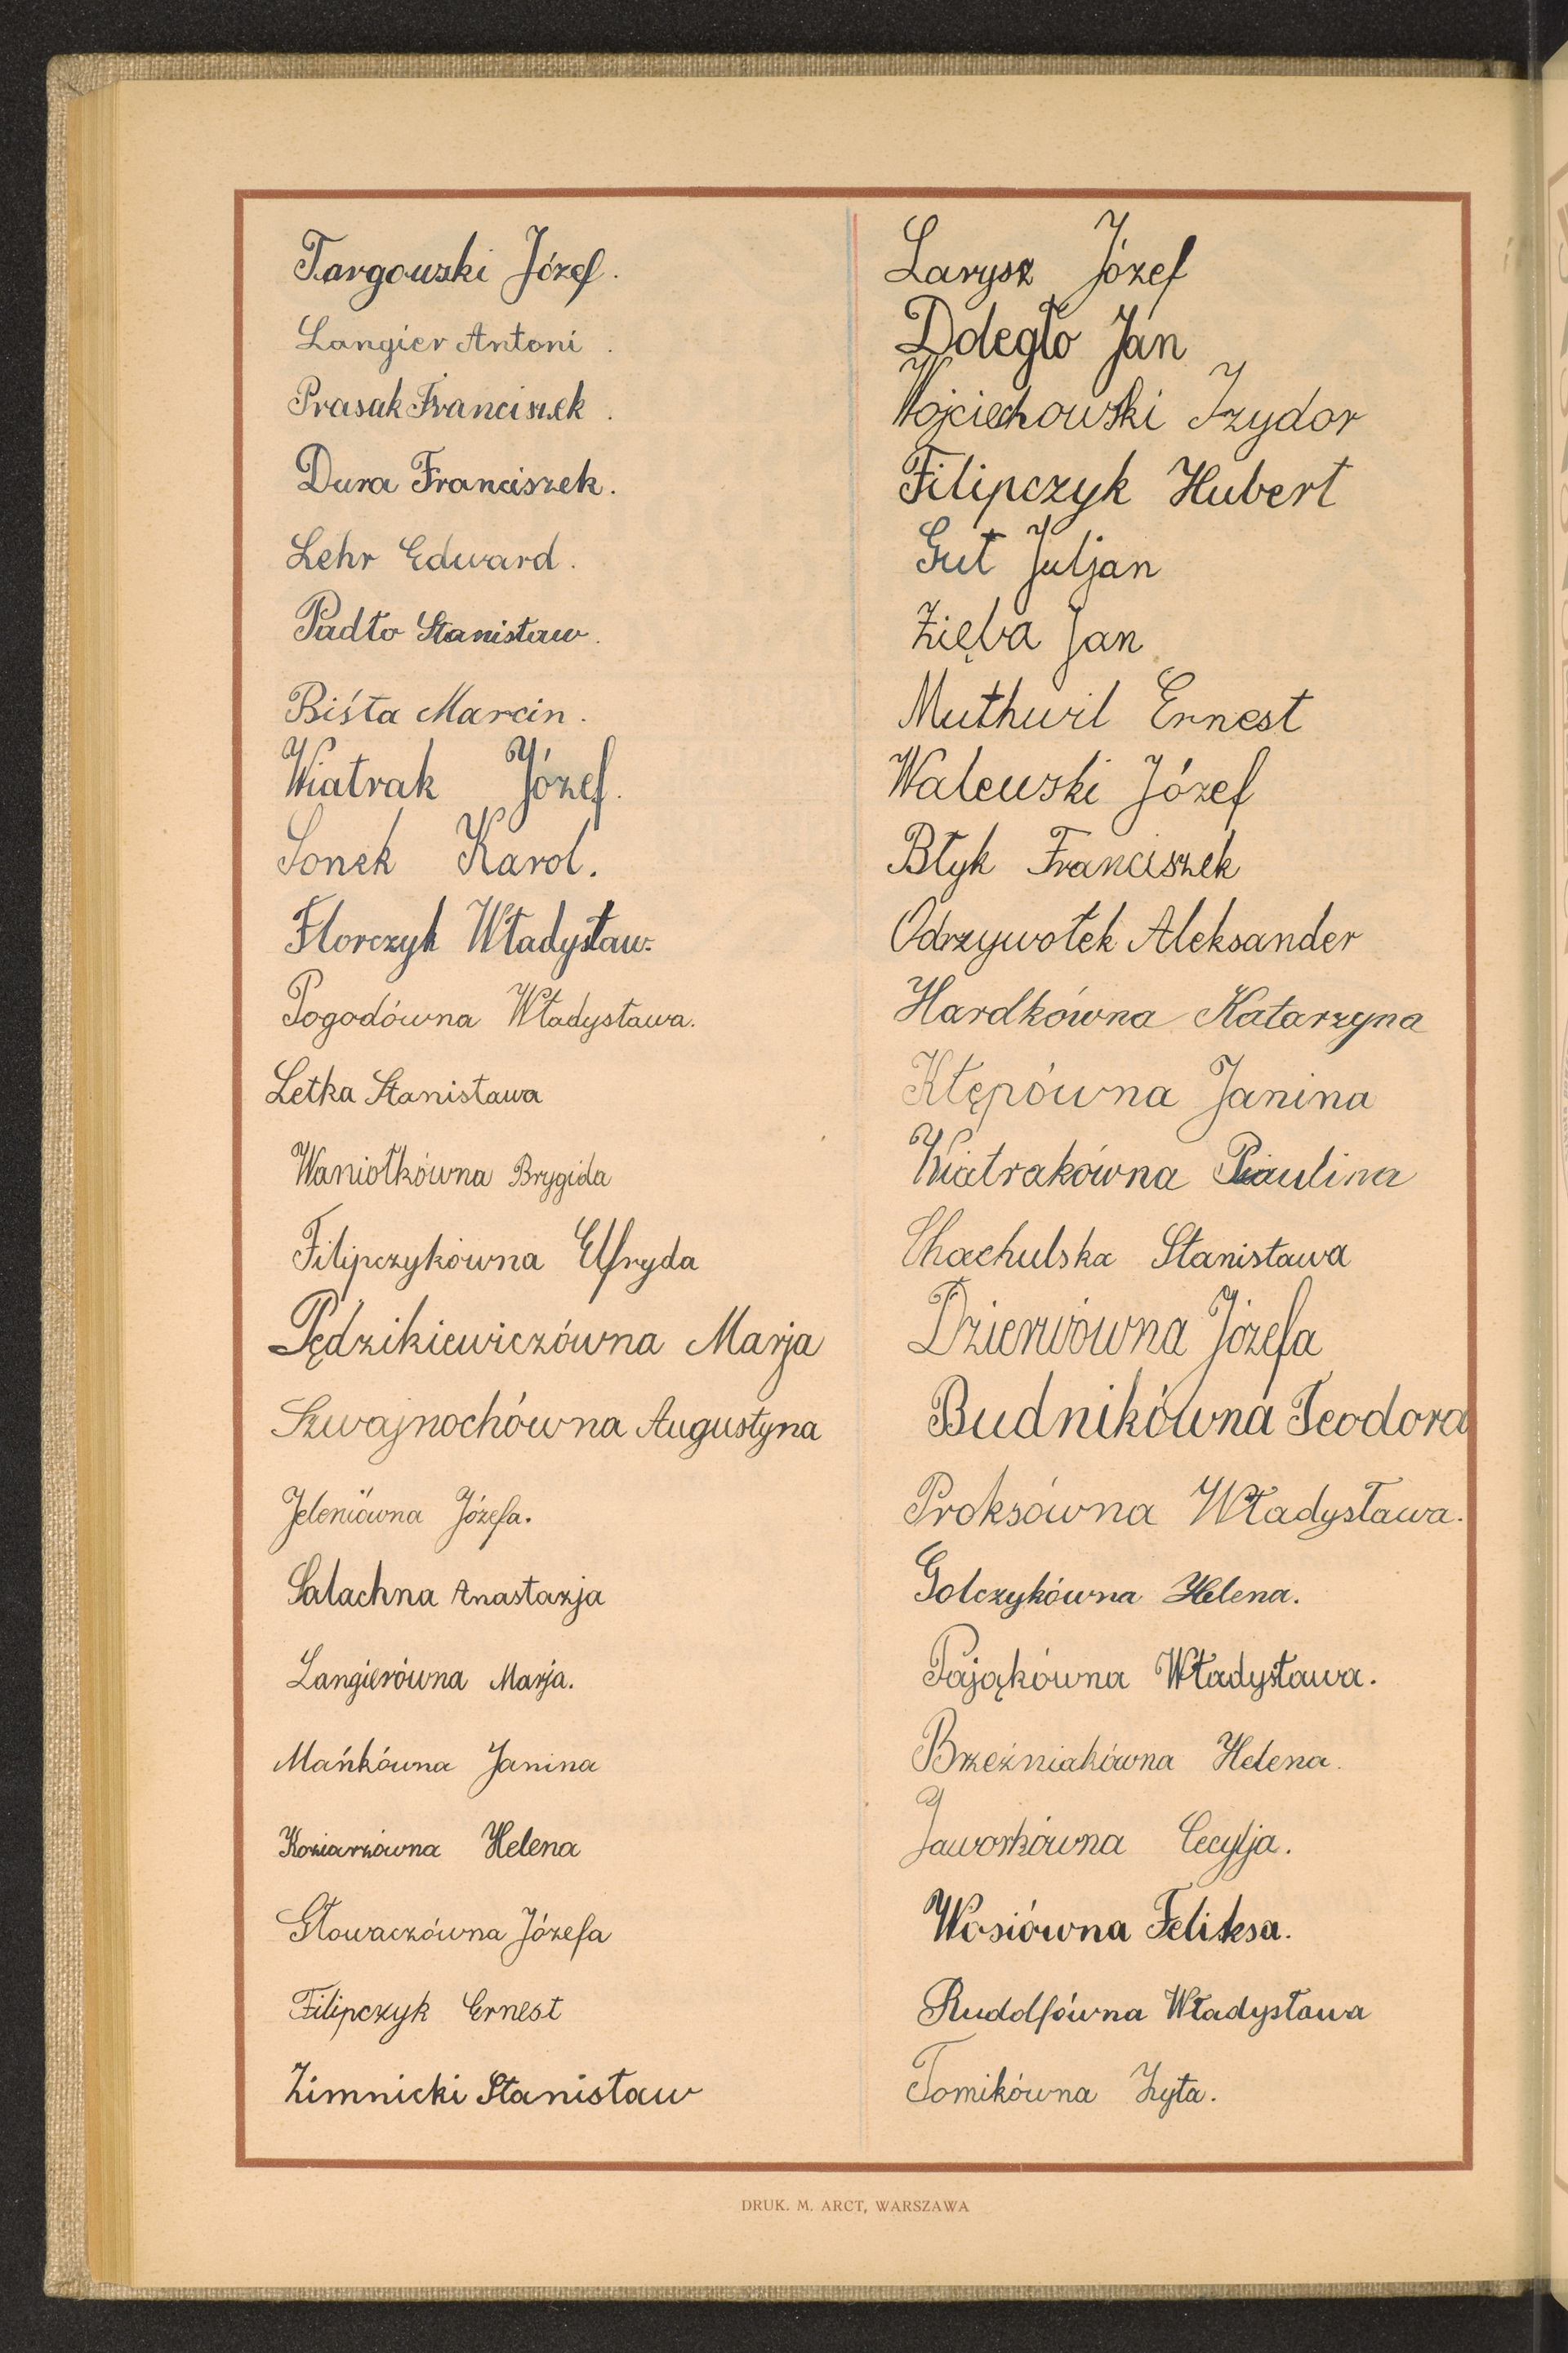 Targowski Józef.
Langier Antoni.
Prasak Franciszek.
Dura Franciszek.
Lehr Edward.
Padło Stanisław.
Biśta Marcin.
Wiatrak Józef.
Sonek Karol.
Florczyk Władysław.
Pogodówna Władysława.
Letka Stanisława
Waniołkówna Brygida
Filipczykówna Elfryda
Pędzikiewiczówna Marja
Szwajnochówna Augustyna
Jeleniówna Józefa.
Salachna Anastazja
Langierówna Marja.
Mańkówna Janina
Koziarzówna Helena
Głowaczówna Józefa
Filipczyk Ernest
Zimnicki Stanisław
Larysz Józef
Doległo Jan
Wojciechowski Izydor
Filipczyk Hubert
Gut Juljan
Zięba Jan
Muthwil Ernest
Walewski Józef
Błyk Franciszek
Odrzywołek Aleksander
Hardkówna Katarzyna
Kłępówna Janina
Wiatrakówna Paulina
Chachulska Stanisława
Dzierwówna Józefa
Budnikówna Teodora
Proksówna Władysława.
Golczykówna Helena.
Pająkówna Władysława.
Brzeźniakówna Helena.
Jaworkówna Cecylja.
Wosiówna Feliksa.
Rudolfówna Władysława
Tomikówna Zyta.
DRUK. M. ARCT, WARSZAWA